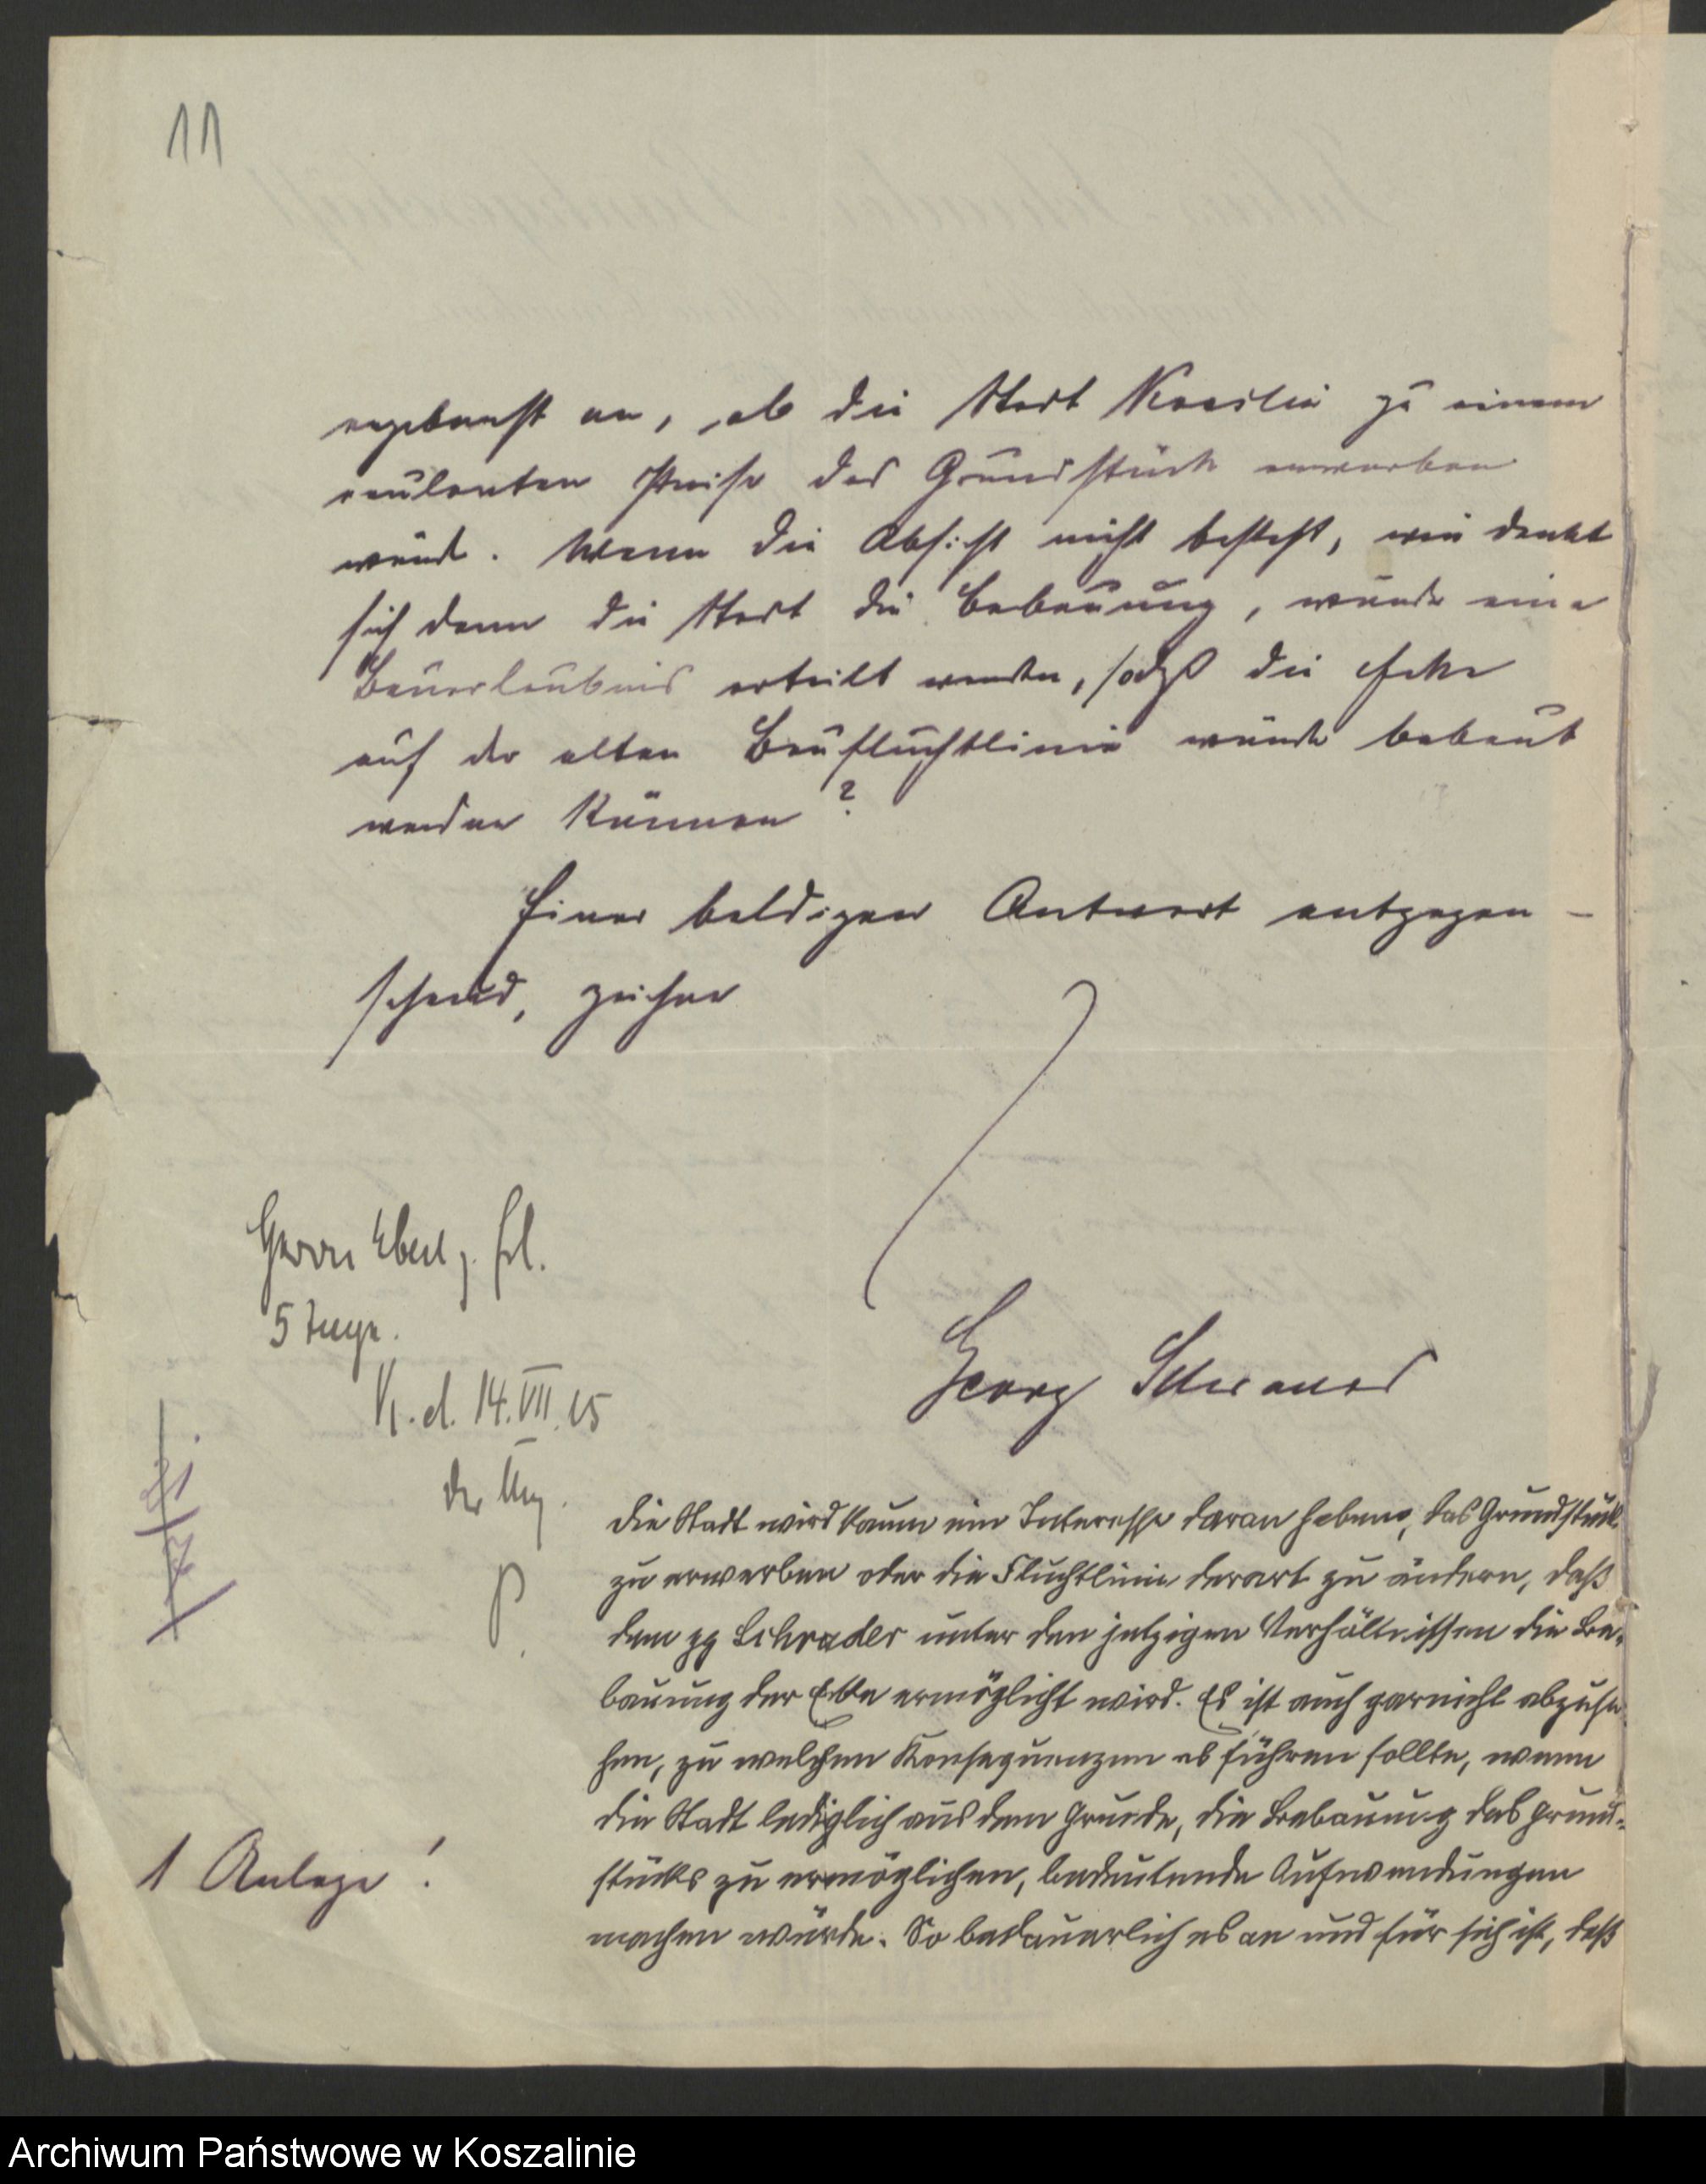 11
ergebenst an, ob die Stadt Koeslin zu einem
coulanten Preise das Grundstück erwerben
würde. Wenn die Absicht nicht besteht, wie denkt
sich denn die Stadt die Bebauung, würde eine
Bauerlaubnis erteilt werden, sodaß die Ecke
auf der alten Baufluchtlinie würde bebaut
werden können?
Einer baldigen Antwort entgegen-
sehend, zeichne
Georg Schrader
Herrn Ebert z.
5 Tage.
K. d. 14. VII. 15
Der Mag.
P.
die Stadt wird kaum ein Interesse daran haben, das Grundstück
zu erwerben oder die Fluchtlinie derart zu ändern, daß
dem pp Schrader unter den jetzigen Verhältnissen die Be-
bauung der Ecke ermöglicht wird. Es ist auch garnicht abzuse-
hen, zu welchen Konsequenzen es führen sollte, wenn
die Stadt lediglich aus dem Grunde, die Bebauung des Grund-
stücks zu ermöglichen, bedeutende Aufwendungen
machen würde. So bedauerlich es an und für sich ist, daß
1 Anlage!
Archiwum Państwowe w Koszalinie